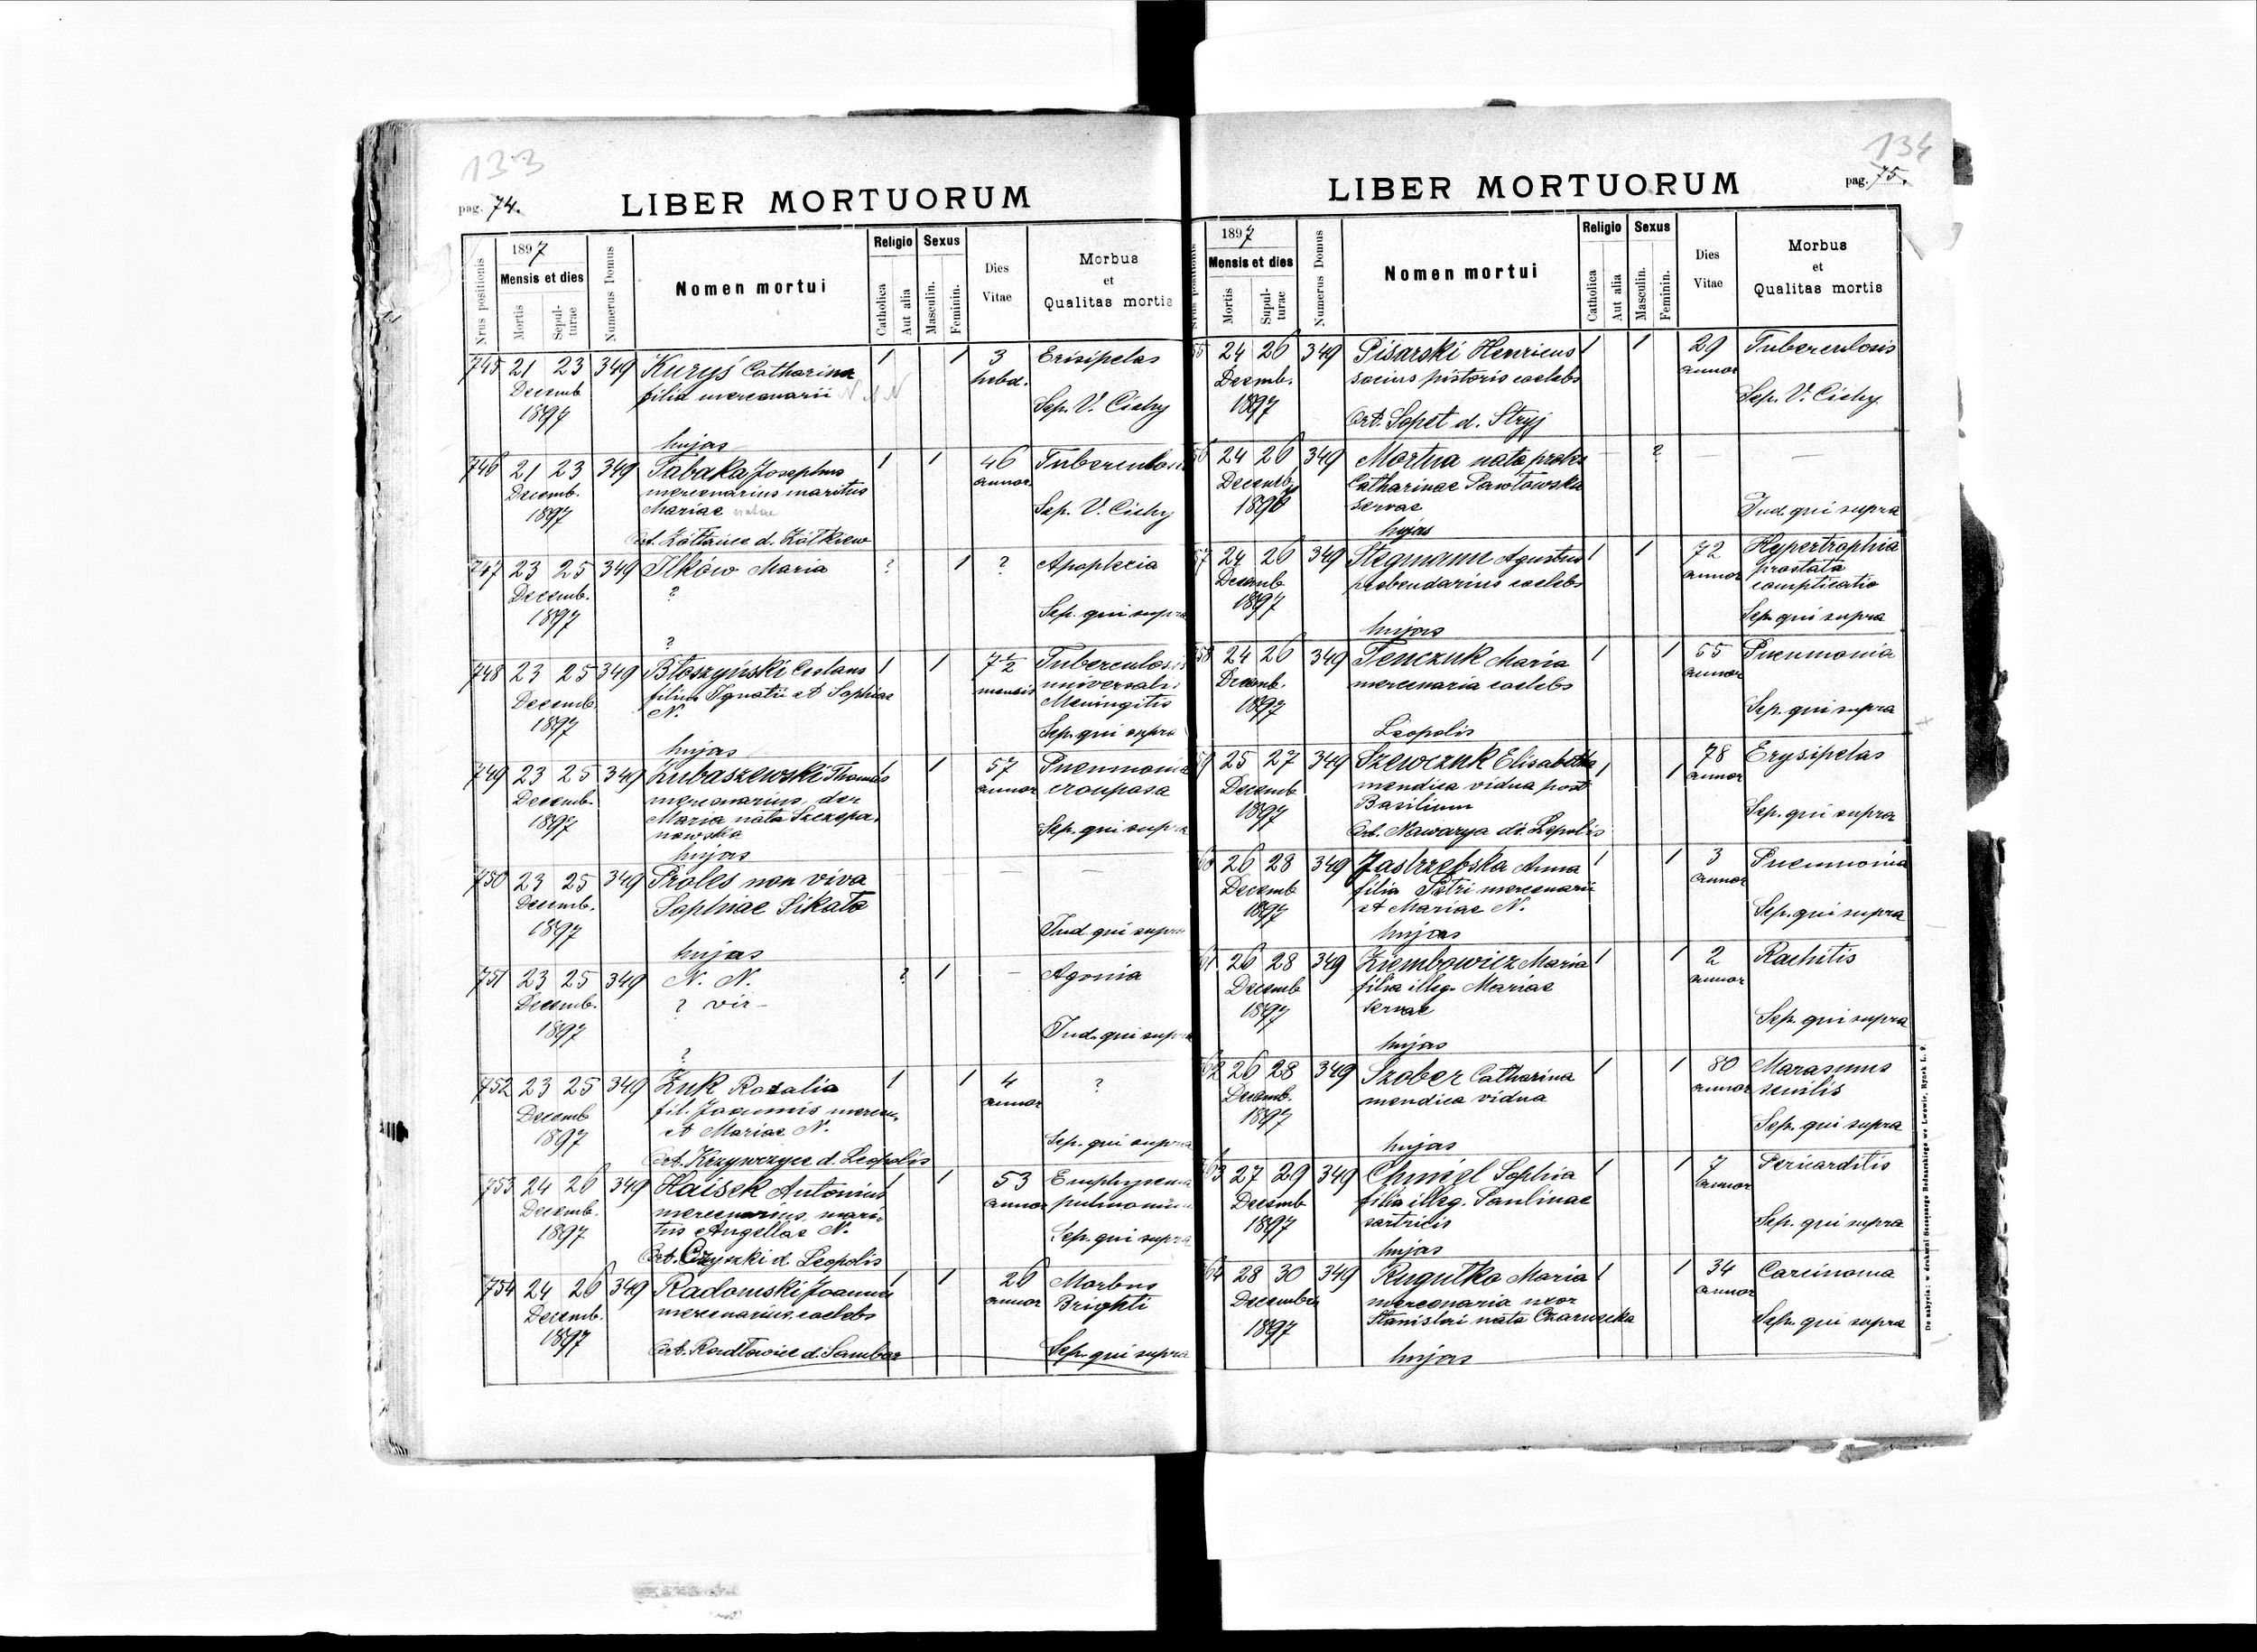 133
pag. 74.
LIBER MORTUORUM
Nrus positionis
1897
Mensis et dies
Mortis
Sepulturae
Numerus Domus
Nomen mortui
Religio
Catholica
Aut alia
Sexus
Masculin.
Feminin.
Dies
Vitae
Morbus
et
Qualitas mortis
745 21 23 349 Kuryś Catharina 1 1 3 Erisipelas
Decemb filia mercenarii N hebd.
1897 Sep. V. Cichy
hujas
746 21 23 349 Tabaka Josephus 1 1 46 Tuberculosis
Decemb. mercenarius maritus annor.
1897 Mariae natae Sep. V. Cichy
Art. Żółtańce d. Żółkiew
747 23 25 349 Ilków Maria ? 1 ? Apoplexia
Decemb. ?
1897 Sep. qui supra
?
748 23 25 349 Błoszyński Ceslaus 1 1 7 1/2 Tuberculosis
Decemb. filius Ignatii et Sophiae mensis universalis
1897 N. Meningitis
hujas Sep. qui supra
749 23 25 349 Lubaszewski Thomas 1 57 Pneumonia
Decemb. mercenarius, der annor crouposa
1897 Maria nata Szczepa-
nowska Sep. qui supra
hujas
750 23 25 349 Proles non viva — — — —
Decemb. Sophiae Sikała
1897 Ind. qui supra
hujas
751 23 25 349 N. N. ? 1 — Agonia
Decemb. ? vir —
1897 Ind. qui supra
?
752 23 25 349 Żuk Rozalia 1 1 4 ?
Decemb fil. Joannis mercen. annor
1897 et Mariae N. Sep. qui supra
Ort. Krzywczyce d. Leopolis
753 24 26 349 Haisek Antonius 1 1 53 Emphysema
Decemb. mercenarius, mari- annor pulmonum
1897 tus Angellae N. Sep. qui supra
Ort. Czyszki d. Leopolis
754 24 26 349 Radomski Joannes 1 1 26 Morbus
Decemb. mercenarius, caelebs annor Brighti
1897 Ort. Radłowice d. Sambor Sep. qui supra
134
pag. 75.
LIBER MORTUORUM
Nrus positionis
1897
Mensis et dies
Mortis
Sepulturae
Numerus Domus
Nomen mortui
Religio
Catholica
Aut alia
Sexus
Masculin.
Feminin.
Dies
Vitae
Morbus
et
Qualitas mortis
55 24 26 349 Pisarski Henricus 1 1 29 Tuberculosis
Decemb. socius pistoris caelebs annor
1897 Sep. V. Cichy
Ort. Sopot d. Stryj
56 24 26 349 Mortua nata proles — ? — —
Decemb. Catharinae Pawłowska
1897 servae Ind. qui supra
hujas
57 24 26 349 Stegmann Agustus 1 1 72 Hypertrophia
Decemb prebendarius caelebs annor prostata
1897 complicatio
hujas Sep. qui supra
58 24 26 349 Tenczuk Maria 1 1 55 Pneumonia
Decemb. mercenaria caelebs annor
1897 Sep. qui supra
Leopolis
59 25 27 349 Szewczuk Elisabetha 1 1 78 Erysipelas
Decemb mendica vidua post annor
1897 Basilium Sep. qui supra
Ort. Nawarya d. Lepolis
60 26 28 349 Jastrzębska Anna 1 1 3 Pneumonia
Decemb filia Petri mercenarii annor
1897 et Mariae N. Sep. qui supra
hujas
61 26 28 349 Ziembowicz Maria 1 1 2 Rachitis
Decemb filia illeg. Mariae annor
1897 servae Sep. qui supra
hujas
62 26 28 349 Szober Catharina 1 1 80 Marasmus
Decemb. mendica vidua annor senilis
1897 Sep. qui supra
hujas
63 27 29 349 Chmiel Sophia 1 1 7 Pericarditis
Decemb filia illeg. Paulinae annor
1897 sartricis Sep. qui supra
hujas
64 28 30 349 Rugułka Maria 1 1 34 Carcinoma
Decembris mercenaria uxor annor
1897 Stanislai nata Czarnecka Sep. qui supra
hujas
De nabycia: w drukarni Szczęsnego Bednarskiego we Lwowie, Rynek L. 9.